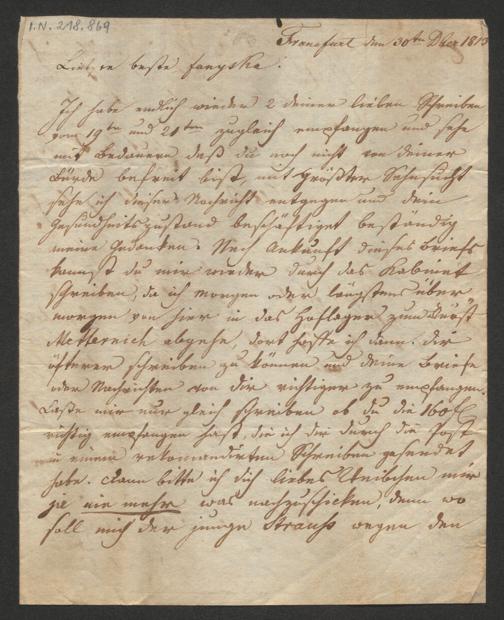 I.N. 218.869
Francfurt den 30ten Dber 1813
beste fanyska!
Ich habe endlich wieder 2 deiner lieben Schreiben
vom 19ten und 21ten zugleich empfangen und sehe
mit Bedauern daß du noch nicht von deiner
Bürde befreit bist, mit größter Sehnsucht
sehe ich dieser Nachricht entgegen und dein
Gesundheitszustand beschäftiget beständig
meine Gedanken. Nach Ankunft dieses Briefs
kannst du mir wieder durch das Kabinet
schreiben, da ich morgen oder längstens über
morgen von hier in das Hoflager zum Fürst
Metternich abgehe, dort hoffe ich dann dir
öfterer schreiben zu können und deine Briefe
oder Nachrichten von dir richtiger zu empfangen.
Laße mir nur gleich schreiben ob du die 160 f
richtig empfangen hast, die ich dir durch die Post
in einem rekomandirten Schreiben gesendet
habe. Dann bitte ich dich liebes Weibchen mir
ja nie mehr was nachzuschicken, denn wo
soll mich der junge Strauß wegen den